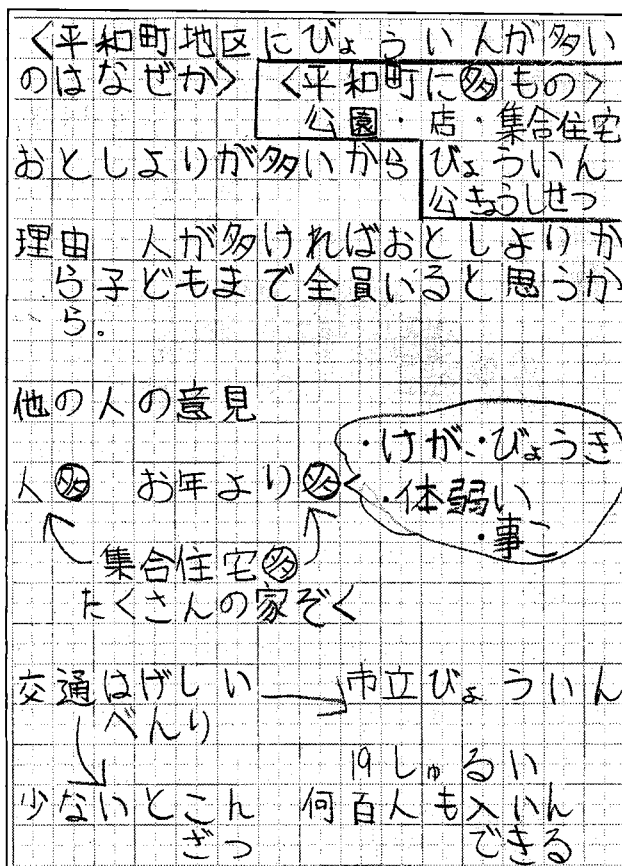 〈平和町地区にびょういんが多い
のはなぜか〉
〈平和町に多もの〉
公園・店・集合住宅
びょういん
公きょうしせつ
おとしよりが多いから
理由 人が多ければおとしよりか
ら子どもまで全員いると思うか
ら。
他の人の意見
人多 お年より多
・けが、・びょうき
・体弱い
・事こ
集合住宅多
たくさんの家ぞく
交通はげしい
べんり
市立びょういん
19しゅるい
何百人も入いん
できる
少ないとこん
ざつ